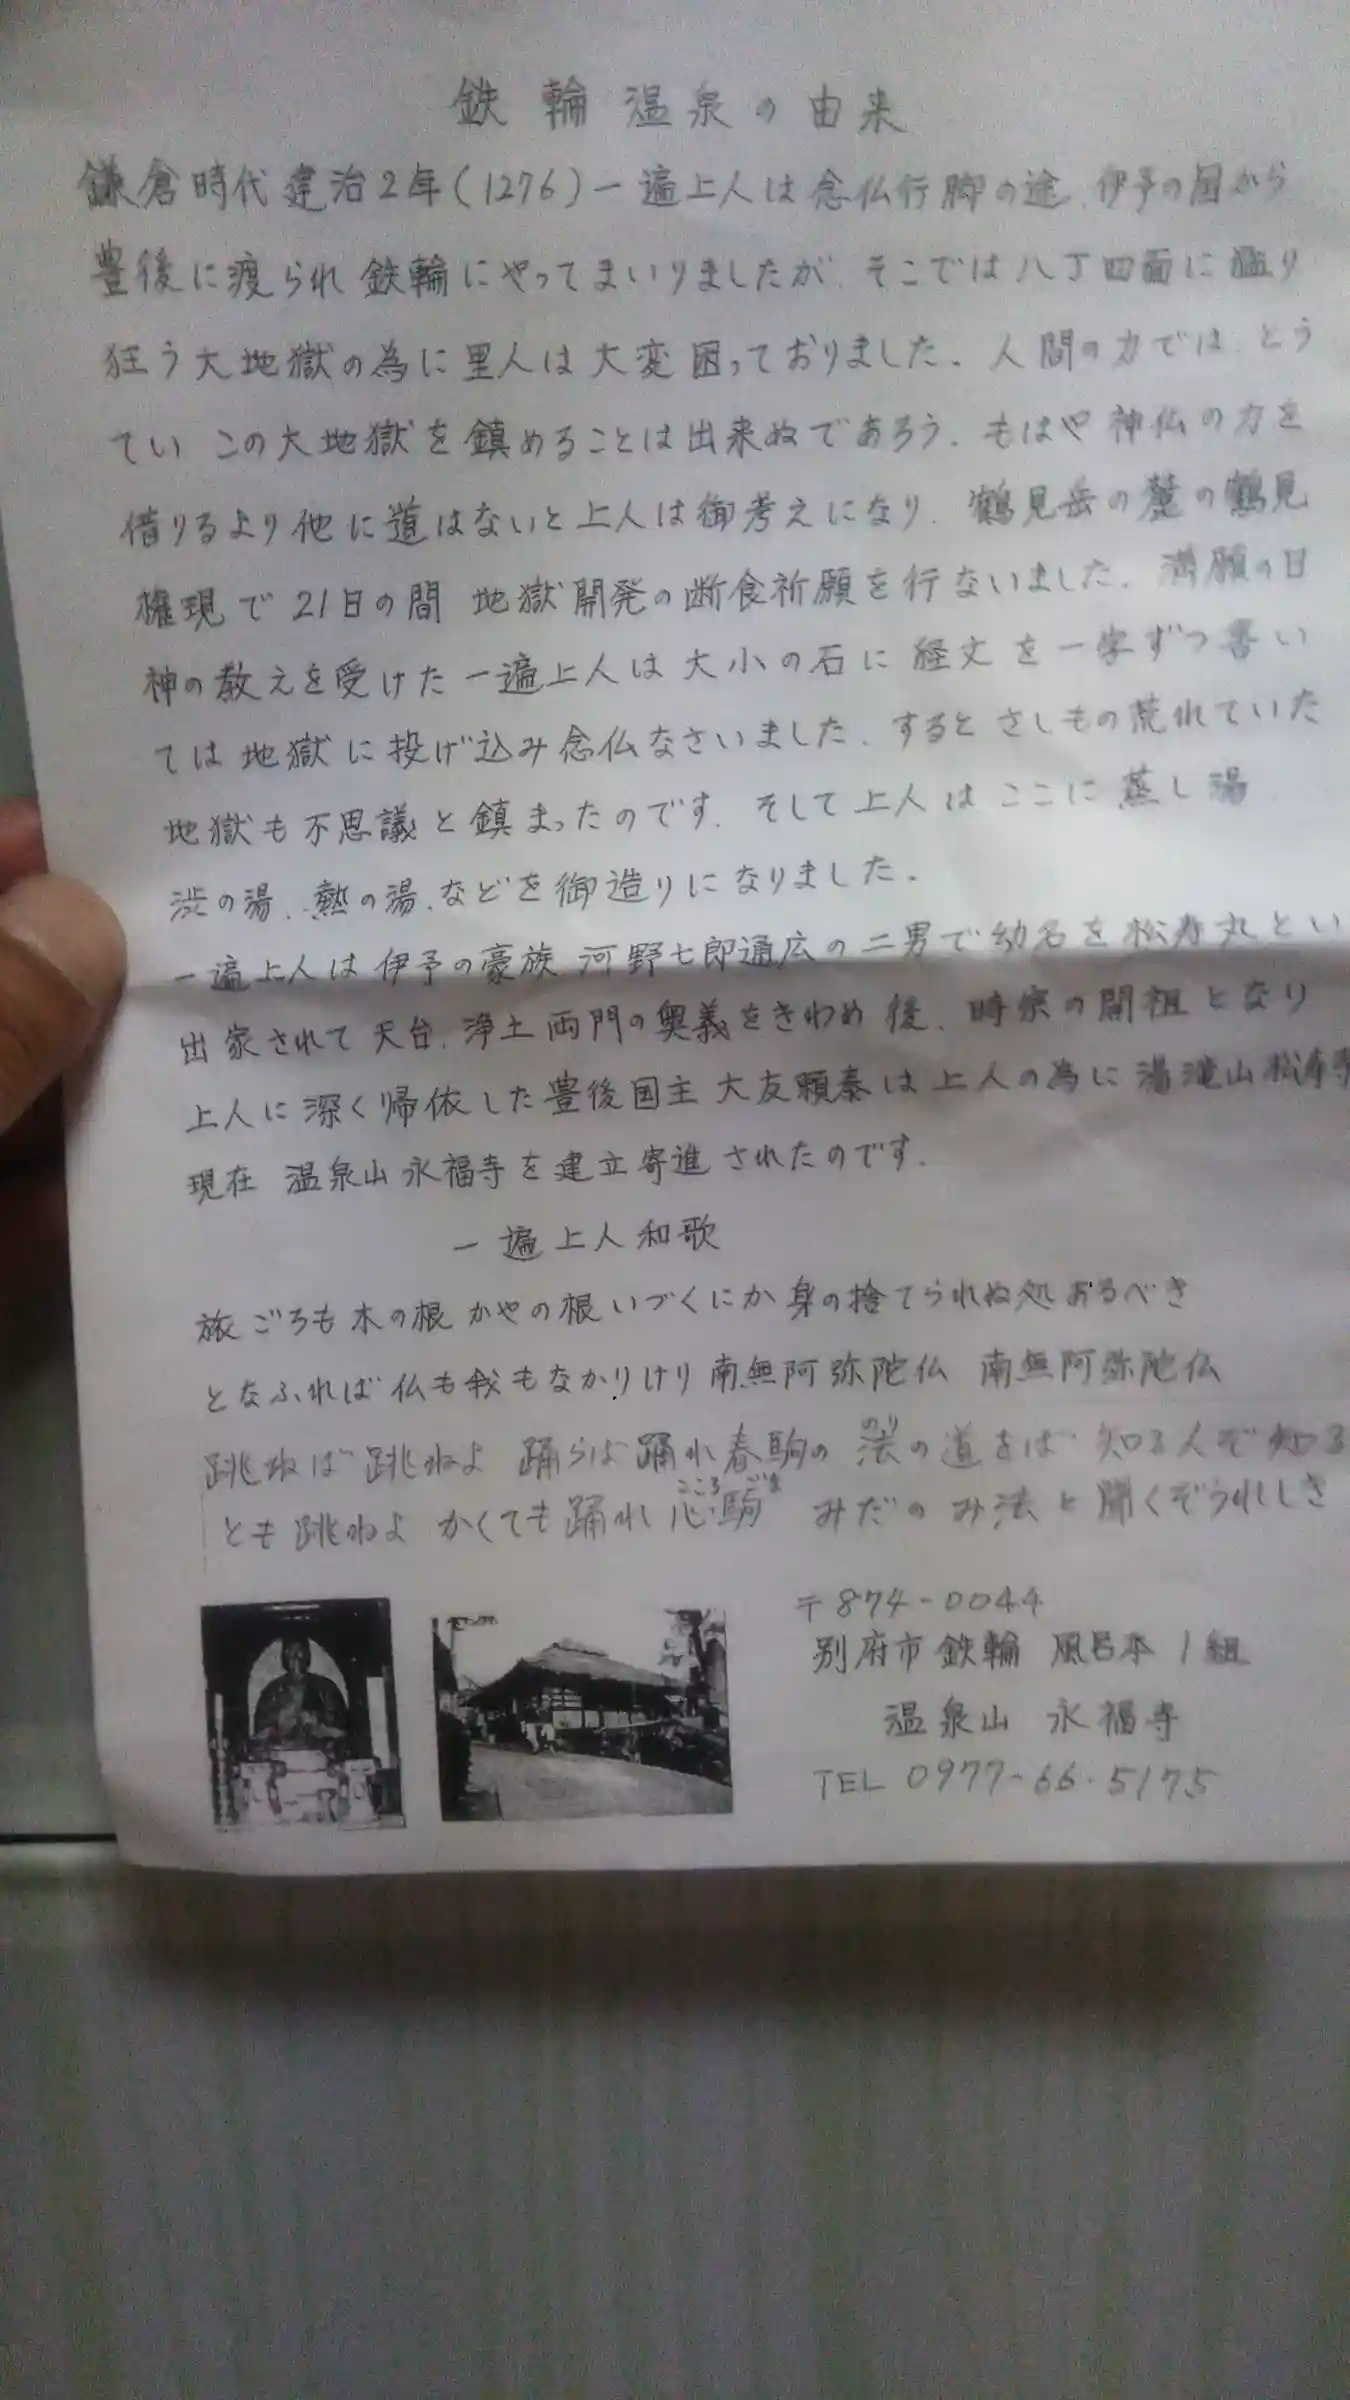 鉄輪温泉の由来
鎌倉時代建治2年(1276)一遍上人は念仏行脚の途、伊予の国から
豊後に渡られ鉄輪にやってまいりましたが、そこでは八丁四面に猛り
狂う大地獄の為に里人は大変困っておりました。人間の力では、とう
てい この大地獄を鎮めることは出来ぬであろう。もはや神仏の力を
借りるより他に道はないと上人は御考えになり、鶴見岳の麓の鶴見
権現で21日の間 地獄開発の断食祈願を行ないました。満願の日
神の教えを受けた一遍上人は大小の石に経文を一字ずつ書い
ては地獄に投げ込み念仏なさいました。するとさしもの荒れていた
地獄も不思議と鎮まったのです。そして上人はここに蒸し湯
渋の湯、熱の湯、などを御造りになりました。
一遍上人は伊予の豪族 河野七郎通広の二男で幼名を松寿丸とい
出家されて天台、浄土両門の奥義をきわめ後、時宗の開祖となり
上人に深く帰依した豊後国主大友頼泰は上人の為に湯滝山松寿寺
現在 温泉山永福寺を建立寄進されたのです。
一遍上人和歌
旅ごろも木の根かやの根いづくにか身の捨てられぬ処あるべき
となふれば仏も我もなかりけり南無阿弥陀仏 南無阿弥陀仏
跳ねば跳ねよ 踊らば踊れ春駒の 法の道をば 知る人ぞ知る
とも跳ねよ かくても踊れ心駒 みだのみ法と聞くぞうれしき
〒874-0044
別府市鉄輪 風呂本1組
温泉山 永福寺
TEL 0977-66-5175